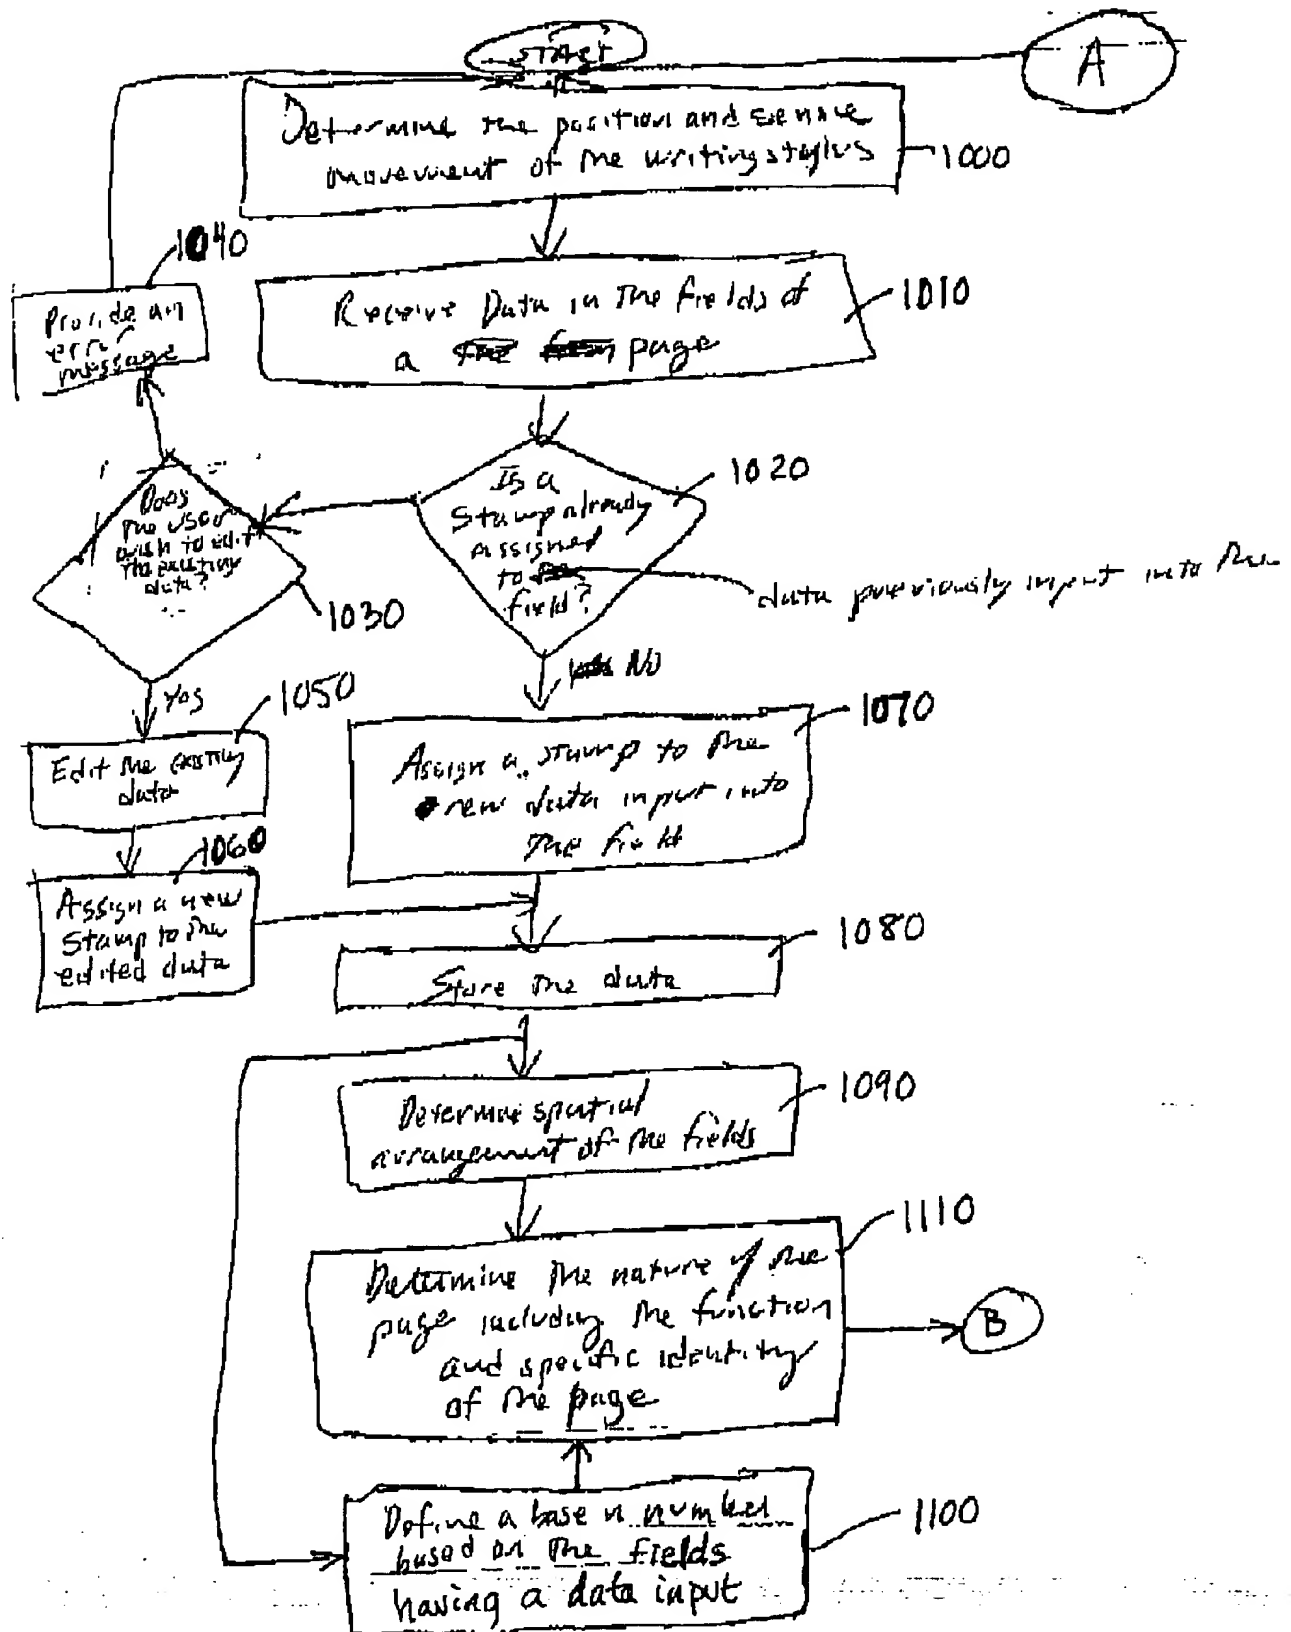 START
A
Determine the position and sense
movement of the writing stylus
1000
1040
Provide an
error
message
Receive Data in the fields of
a the form page
1010
Is a
Stamp already
assigned
to the
field?
1020
data previously input into the
Does
the user
wish to edit
the existing
data?
1030
Yes
No
1050
Edit the existing
data
1060
Assign a new
Stamp to the
edited data
1070
Assign a stamp to the
new data input into
the field
1080
Store the data
1090
Determine spatial
arrangement of the fields
1110
Determine the nature of the
page including the function
and specific identity
of the page
B
1100
Define a base n number
based on the fields
having a data input